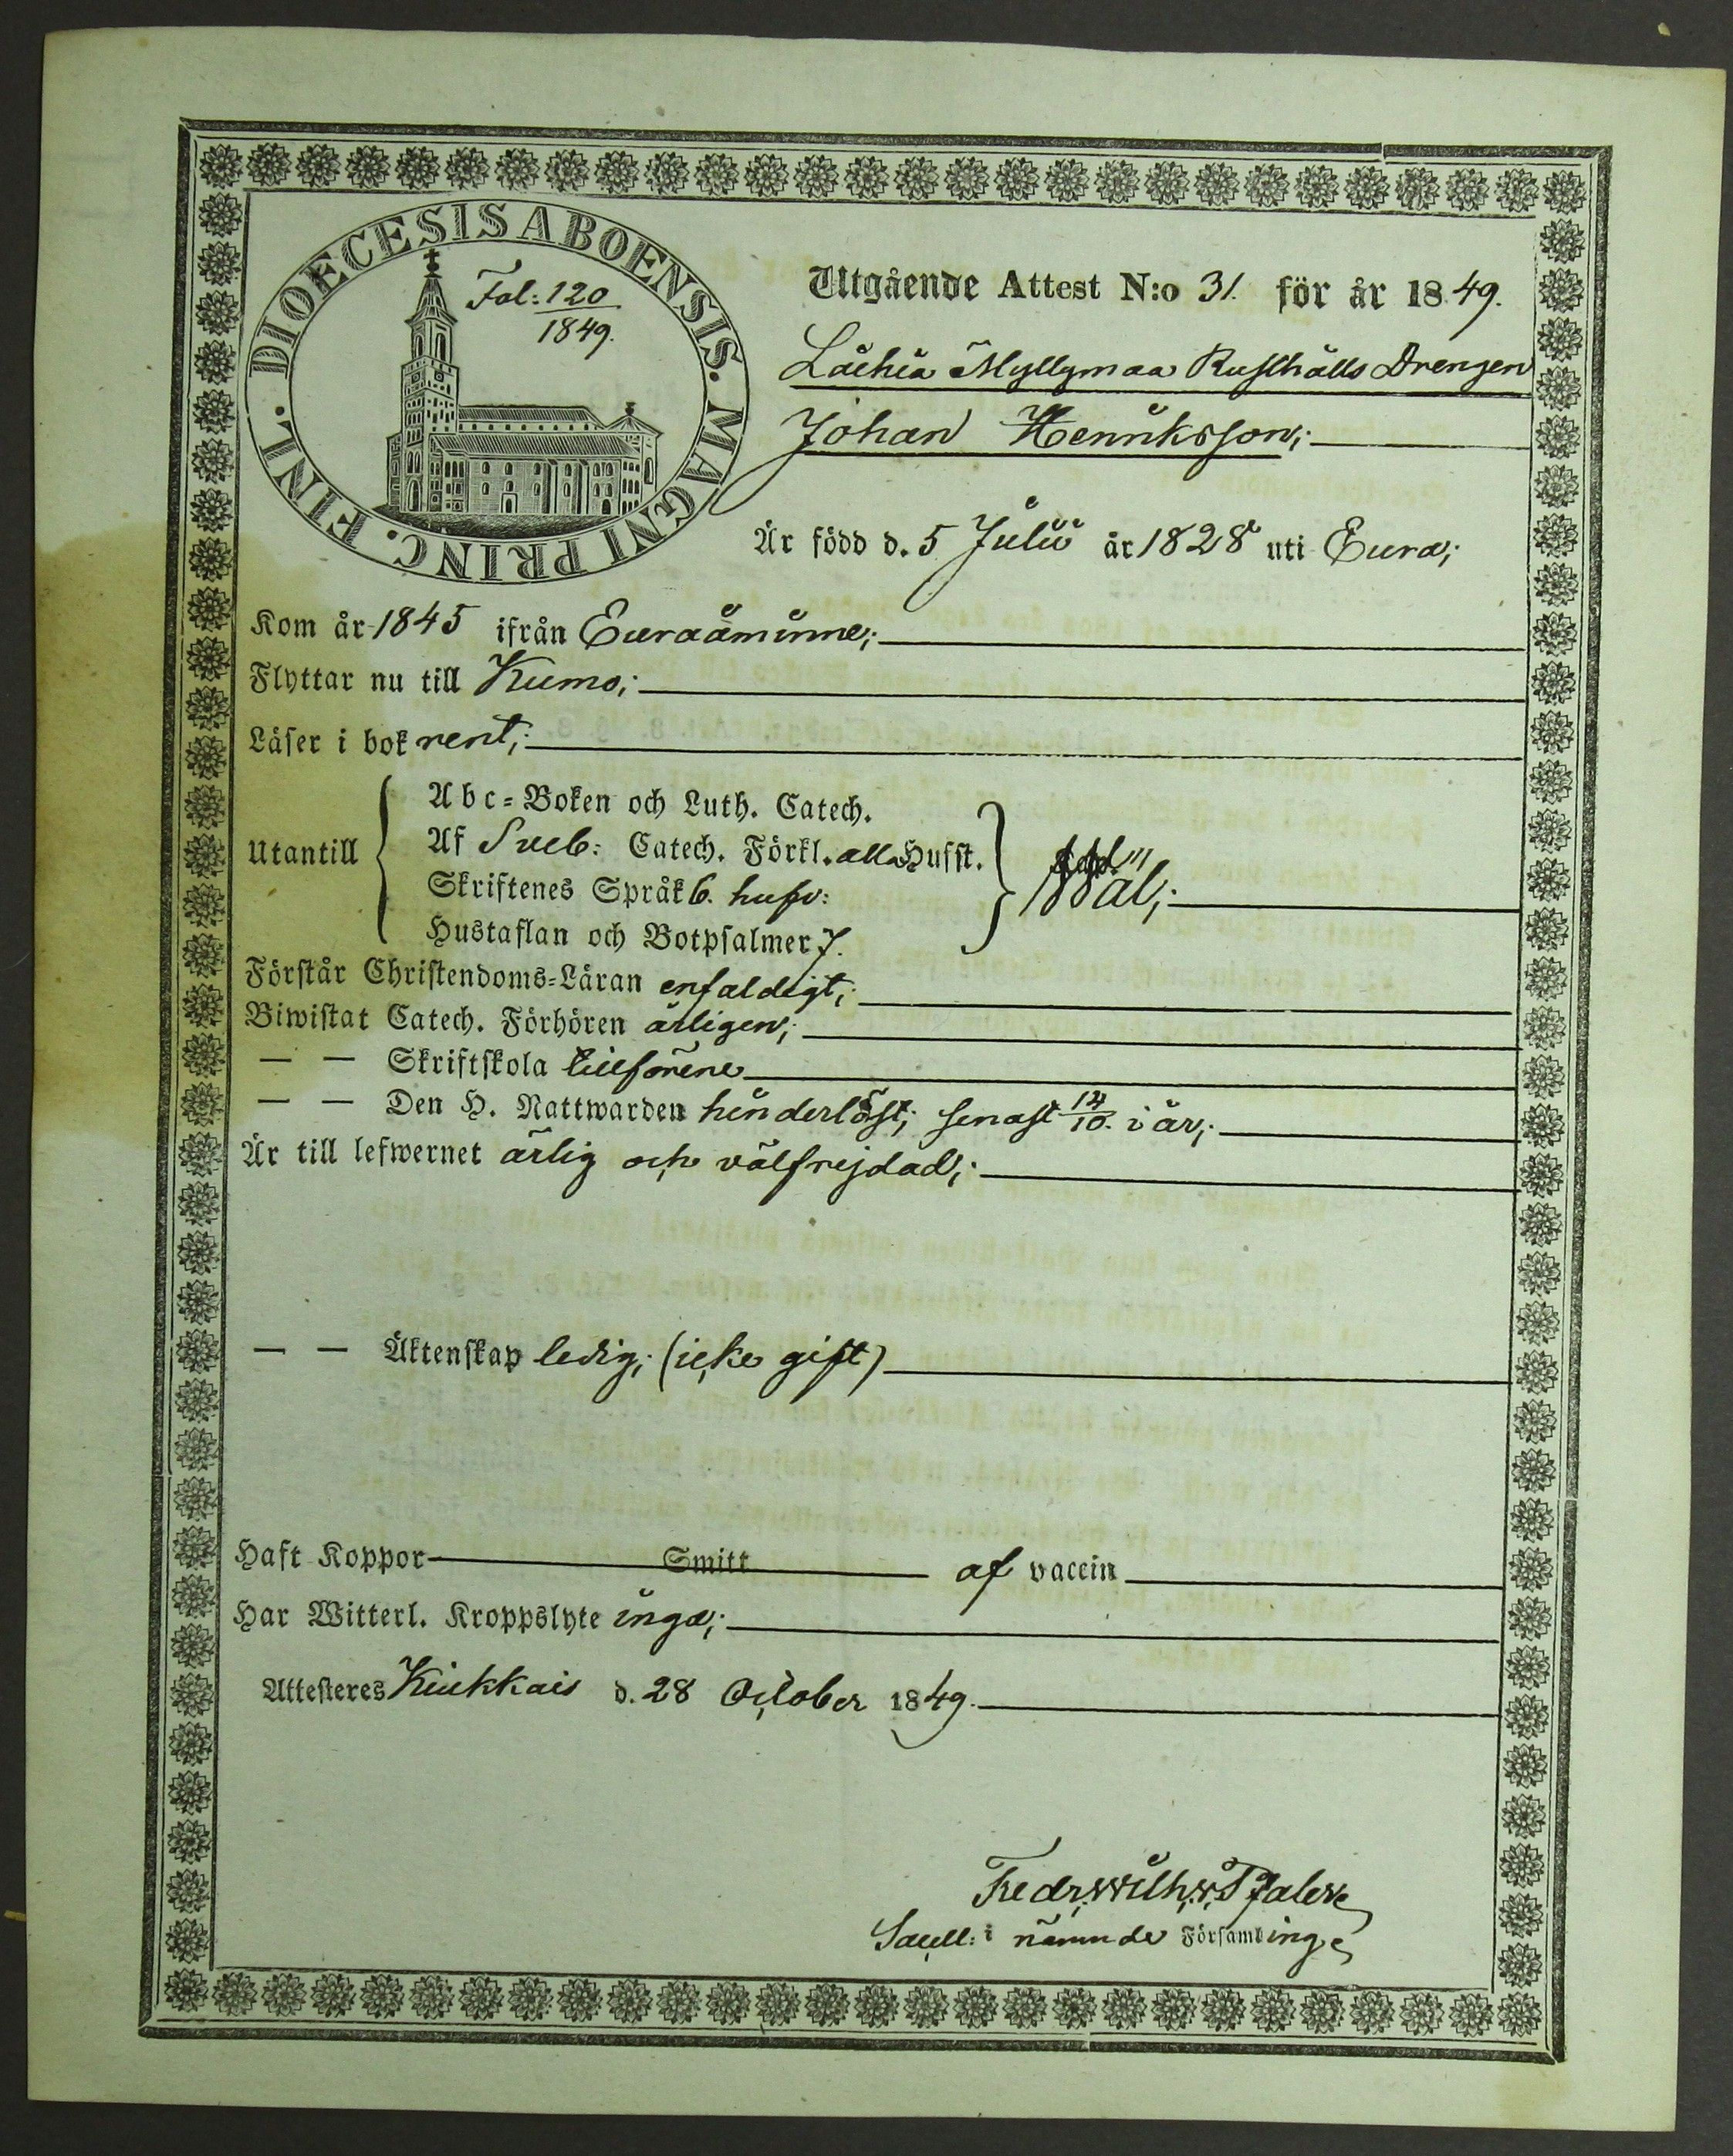 DIOECESIS ABOENSIS. MAGNI PRINC. FINL.
Fol: 120
1849.
Utgående Attest N:o 31. för år 1849.
Laihia Myllymaa Rusthålls Drengen
Johan Henriksson;
Är född d. 5 Julii år 1828 uti Eura;
Kom år 1845 ifrån Euraåminne;
Flyttar nu till Kumo;
Läser i bok rent;
Utantill
Abc-Boken och Luth. Catech.
Af Sveb: Catech. Förkl. alla Husst.
Skriftenes Språk 6. hufv:
Hustaflan och Botpsalmer 7.
wäl;
Förstår Christendoms-Läran enfaldigt;
Biwistat Catech. Förhören årligen;
— — Skriftskola tillförene
— — Den H. Nattwarden hinderlöst; senast 14/10. i år;
Är till lefwernet ärlig och välfrejdad;
— — Äktenskap ledig; (icke gift)
Haft Koppor Smitt af vaccin
Har Witterl. Kroppslyte inga;
Attesteres Kiukkais d. 28 October 1849.
Fredr. Wilh.
Sacell: i nämnde Församling